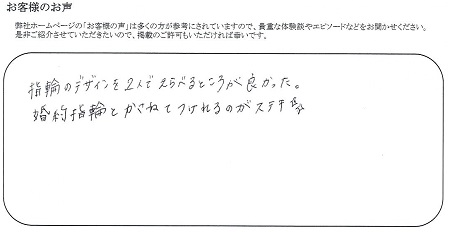 お客様のお声
弊社ホームページの「お客様の声」は多くの方が参考にされていますので、貴重な体験談やエピソードなどをお聞かせください。
是非ご紹介させていただきたいので、掲載のご許可もいただければ幸いです。
指輪のデザインを2人でえらべるところが良かった。
婚約指輪とかさねてつけれるのがステキ